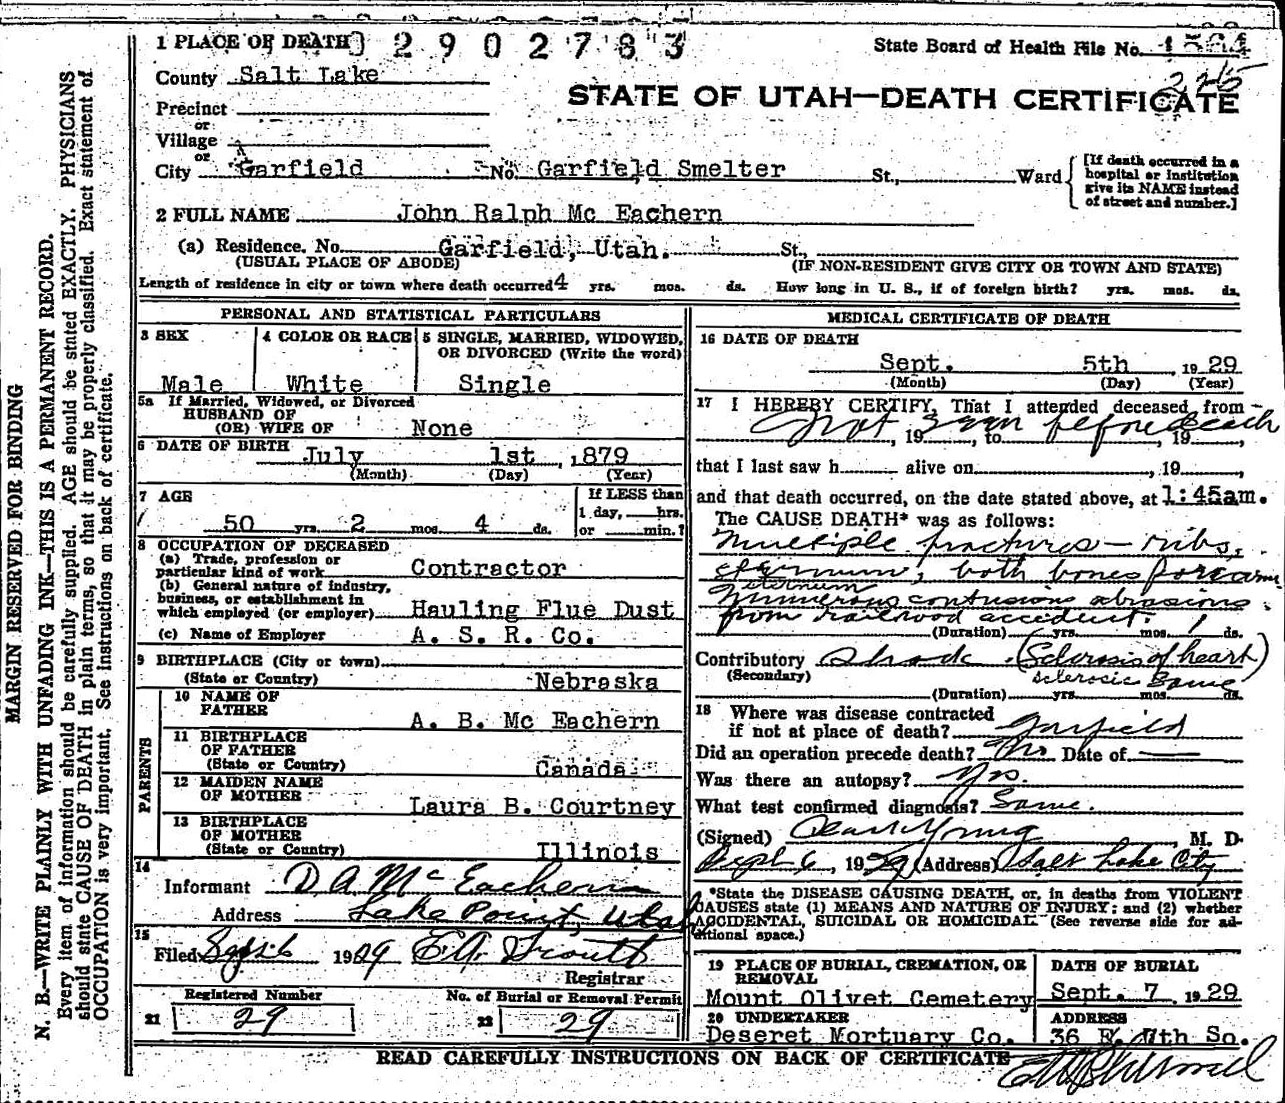 1 PLACE OF DEATH 2902783 State Board of Health File No. 1564
County Salt Lake 225
Precinct STATE OF UTAH—DEATH CERTIFICATE
or
Village
or
City Garfield No. Garfield Smelter St., Ward [If death occurred in a hospital or institution give its NAME instead of street and number.]
2 FULL NAME John Ralph Mc Eachern
(a) Residence. No. Garfield, Utah. St.,
(USUAL PLACE OF ABODE) (IF NON-RESIDENT GIVE CITY OR TOWN AND STATE)
Length of residence in city or town where death occurred 4 yrs. mos. ds. How long in U. S., if of foreign birth? yrs. mos. ds.
PERSONAL AND STATISTICAL PARTICULARS
3 SEX 4 COLOR OR RACE 5 SINGLE, MARRIED, WIDOWED,
OR DIVORCED (Write the word)
Male White Single
5a If Married, Widowed, or Divorced
HUSBAND OF
(OR) WIFE OF None
6 DATE OF BIRTH July 1st, 1879
(Month) (Day) (Year)
7 AGE If LESS than
1 day, hrs.
50 yrs. 2 mos. 4 ds. or min.?
8 OCCUPATION OF DECEASED
(a) Trade, profession or
particular kind of work Contractor
(b) General nature of industry,
business, or establishment in
which employed (or employer) Hauling Flue Dust
(c) Name of Employer A. S. R. Co.
9 BIRTHPLACE (City or town)
(State or Country) Nebraska
PARENTS
10 NAME OF
FATHER A. B. Mc Eachern
11 BIRTHPLACE
OF FATHER
(State or Country) Canada
12 MAIDEN NAME
OF MOTHER Laura B. Courtney
13 BIRTHPLACE
OF MOTHER
(State or Country) Illinois
14
Informant D A Mc Eachern
Address Lake Point, Utah
15
Filed Sept 6 1929 E.A. Troutt
Registrar
Registered Number No. of Burial or Removal Permit
21 29 22 29
MEDICAL CERTIFICATE OF DEATH
16 DATE OF DEATH
Sept. 5th, 1929
(Month) (Day) (Year)
17 I HEREBY CERTIFY, That I attended deceased from
Not, 19 seen, to before death, 19
that I last saw h alive on, 19
and that death occurred, on the date stated above, at 1:45am.
The CAUSE DEATH* was as follows:
Multiple fractures - ribs,
sternum, both bones forearm
sternum
Numerous contusions abrasions
from railroad accident.
(Duration) yrs. mos. 1 ds.
Contributory Shock (Sclerosis of heart)
(Secondary) sclerosis Same
(Duration) yrs. mos. ds.
18 Where was disease contracted
if not at place of death? Garfield
Did an operation precede death? No Date of
Was there an autopsy? Yes.
What test confirmed diagnosis? Same.
(Signed) Young, M. D.
Sept 6, 1929 (Address) Salt Lake City
*State the DISEASE CAUSING DEATH, or, in deaths from VIOLENT
CAUSES state (1) MEANS AND NATURE OF INJURY; and (2) whether
ACCIDENTAL, SUICIDAL OR HOMICIDAL. (See reverse side for ad-
ditional space.)
19 PLACE OF BURIAL, CREMATION, OR DATE OF BURIAL
REMOVAL
Mount Olivet Cemetery Sept. 7, 1929
20 UNDERTAKER ADDRESS
Deseret Mortuary Co. 36 E. 7th So.
READ CAREFULLY INSTRUCTIONS ON BACK OF CERTIFICATE
MARGIN RESERVED FOR BINDING
N. B.—WRITE PLAINLY WITH UNFADING INK—THIS IS A PERMANENT RECORD.
Every item of information should be carefully supplied. AGE should be stated EXACTLY. PHYSICIANS
should state CAUSE OF DEATH in plain terms, so that it may be properly classified. Exact statement of
OCCUPATION is very important. See instructions on back of certificate.